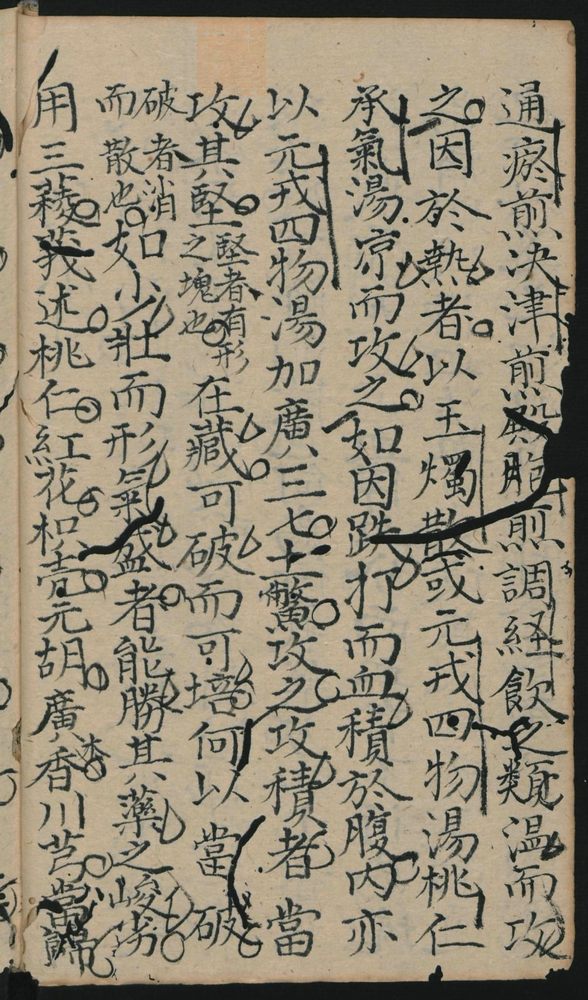 通瘀煎決津煎殿胞煎調経飲之類温而攻
之因於熱者以玉燭散或元戎四物湯桃仁
承氣湯凉而攻之如因跌打而血積於腹内亦
以元戎四物湯加廣三七土鱉攻之攻積者當
攻其堅堅者有形之塊也在藏可破而可培何以當破
破者消而散也如少壯而形氣盛者能勝其藥之峻劣
用三稜莪述桃仁紅花枳壳元胡廣木香川芎當歸